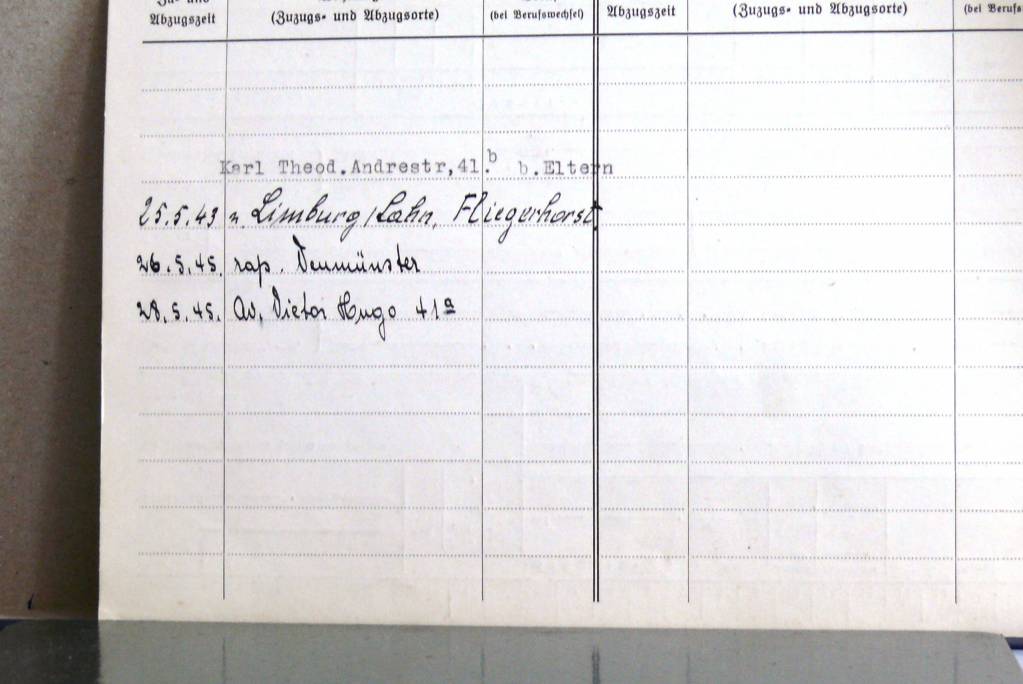 Zu- und
Abzugszeit
(Zuzugs- und Abzugsorte)
(bei Berufswechsel)
Abzugszeit
(Zuzugs- und Abzugsorte)
(bei Berufs
Karl Theod.Andrestr,41.b b.Eltern
25.5.43 n. Limburg/Lahn, Fliegerhorst
26.5.45. rap. Neumünster
28.5.45. Av. Victor Hugo 41a